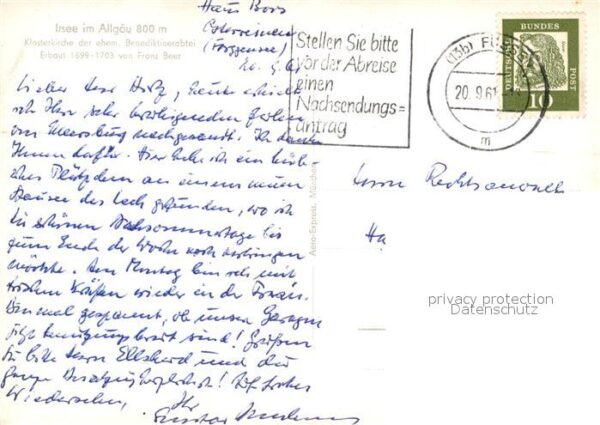 Irsee im Allgäu 800 m
Klosterkirche der ehem. Benediktinerabtei
Erbaut 1699-1703 von Franz Beer
Haus Bors
Osterreinen
(Forggensee)
20. 9. 61
Stellen Sie bitte
vor der Abreise
einen
Nachsendungs=
antrag
(13b) FÜSSEN
20. 9. 61
m
DEUTSCHE BUNDESPOST
10
Lieber Herr Hotz, heute erhielt
ich Ihre sehr
von Meersburg nachgesandt. Ich danke
Ihnen dafür. Hier habe ich ein hüb-
sches Plätzchen an einem neuen
Stausee des Lech gefunden, wo ich
die schönen Nachsommertage bis
zum Ende der Woche noch verbringen
möchte. Am Montag bin ich mit
frischen Kräften wieder in der Praxis.
Bin mal gespannt, ob unsere Garagen
jetzt benutzungsbereit sind! Grüßen
Sie bitte Herrn und die
ganze Besatzung herzlichst! Auf frohes
Wiedersehen,
Ihr
Gustav
Aero-Express, München
Herrn Rechtsanwalt
Ha
privacy protection
Datenschutz